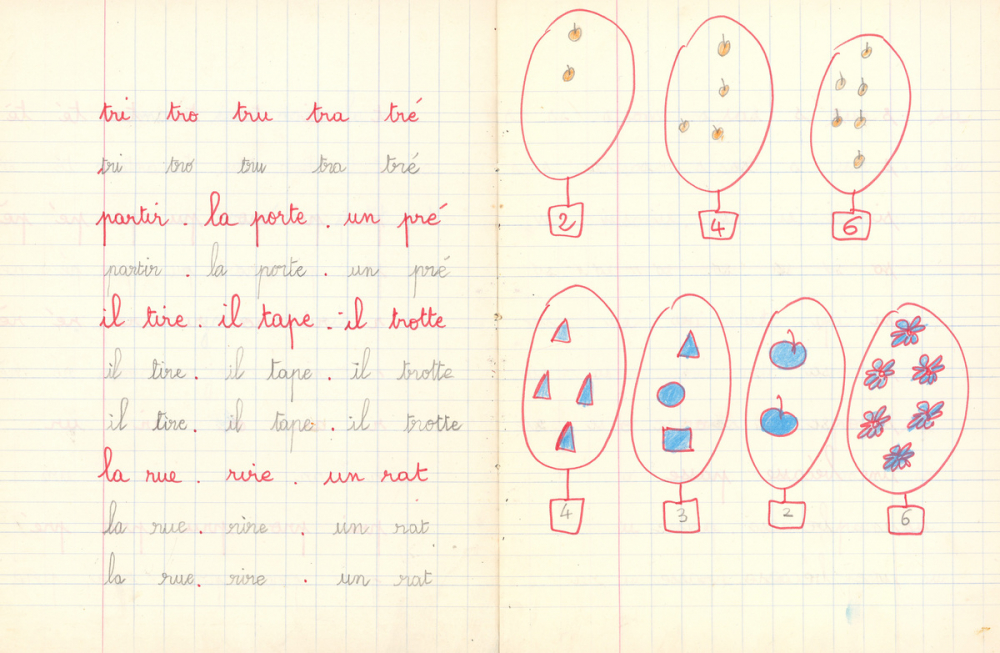 tri tro tru tra tré
tri tro tru tra tré
partir . la porte . un pré
partir . la porte . un pré
il tire . il tape . il trotte
il tire . il tape . il trotte
il tire . il tape . il trotte
la rue . rire . un rat
la rue . rire . un rat
la rue . rire . un rat
2 4 6
4 3 2 6